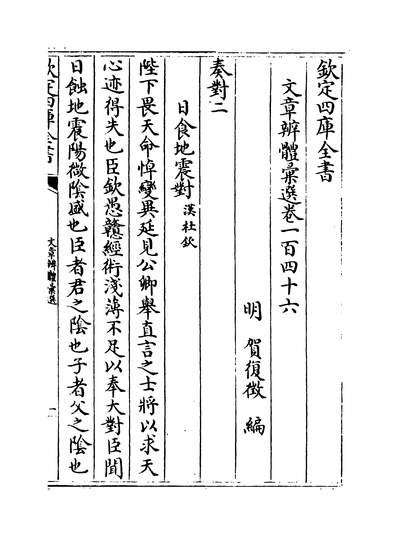 欽定四庫全書
文章辨體彙選卷一百四十六
明 賀復徴 編
奏對二
日食地震對 漢杜欽
陛下畏天命悼變異延見公卿舉直言之士將以求天
心迹得失也臣欽愚戇經術淺薄不足以奉大對臣聞
日蝕地震陽微陰盛也臣者君之陰也子者父之陰也
欽定四庫全書
文章辨體彙選
一